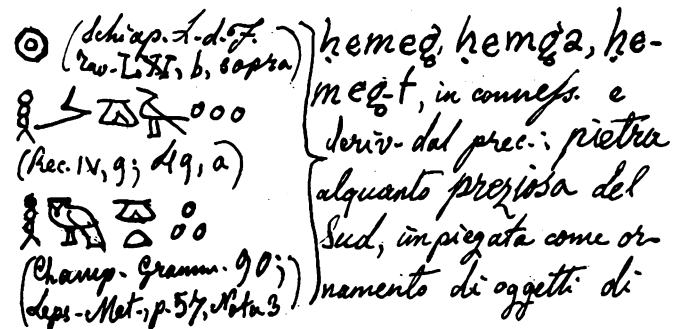 (Schiap. L. d. F.
Tav. LXI, b, sopra)
(Rec. IV, 9; 49, a)
(Champ. Gramm. 90;
Leps. Met., p. 57, Nota 3)
ḥemeg, ḥemga, ḥe-
meg-t, in conness. e
deriv. dal prec.: pietra
alquanto preziosa del
Sud, impiegata come or-
namento di oggetti di